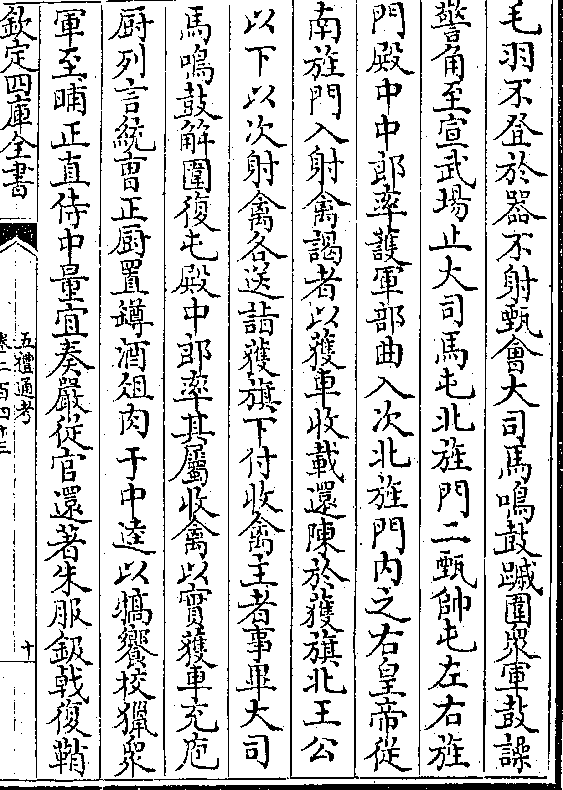 毛羽不登於器不射甄會大司馬鳴鼓蹙圍衆軍鼓譟
警角至宣武場止大司馬屯北旌門二甄帥屯左右旌
門殿中中郎率護軍部曲入次北旌門内之右皇帝從
南旌門入射禽謁者以獲車收載還陳於獲旗北王公
以下以次射禽各送詣獲旗下付收禽主者事畢大司
馬鳴鼓解圍復屯殿中郎率其屬收禽以實獲車充庖
厨列言統曹正厨置罇酒俎肉于中逵以犒饗校獵衆
軍至晡正直侍中量宜奏嚴從官還著朱服鈒戟復鞘
欽定四庫全書
五禮通考
卷二百四十三
十